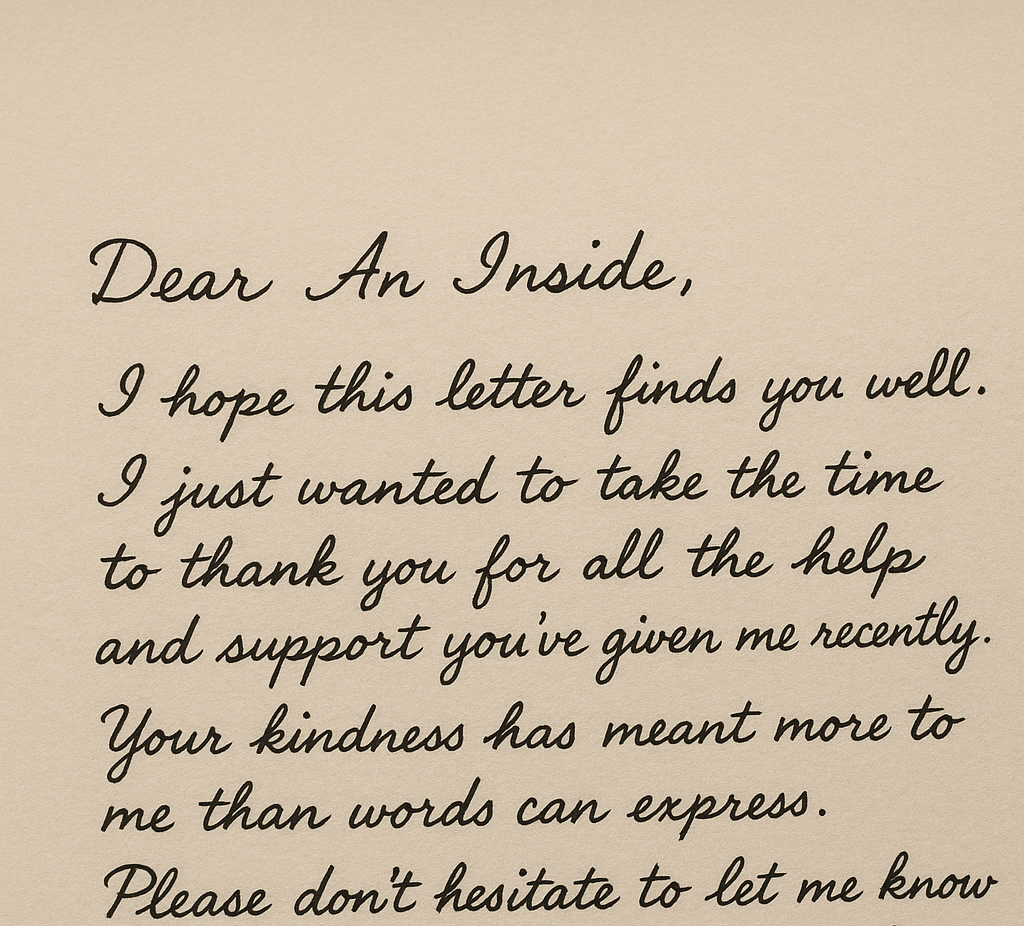 Dear An Inside,
I hope this letter finds you well.
I just wanted to take the time
to thank you for all the help
and support you've given me recently.
Your kindness has meant more to
me than words can express.
Please don't hesitate to let me know